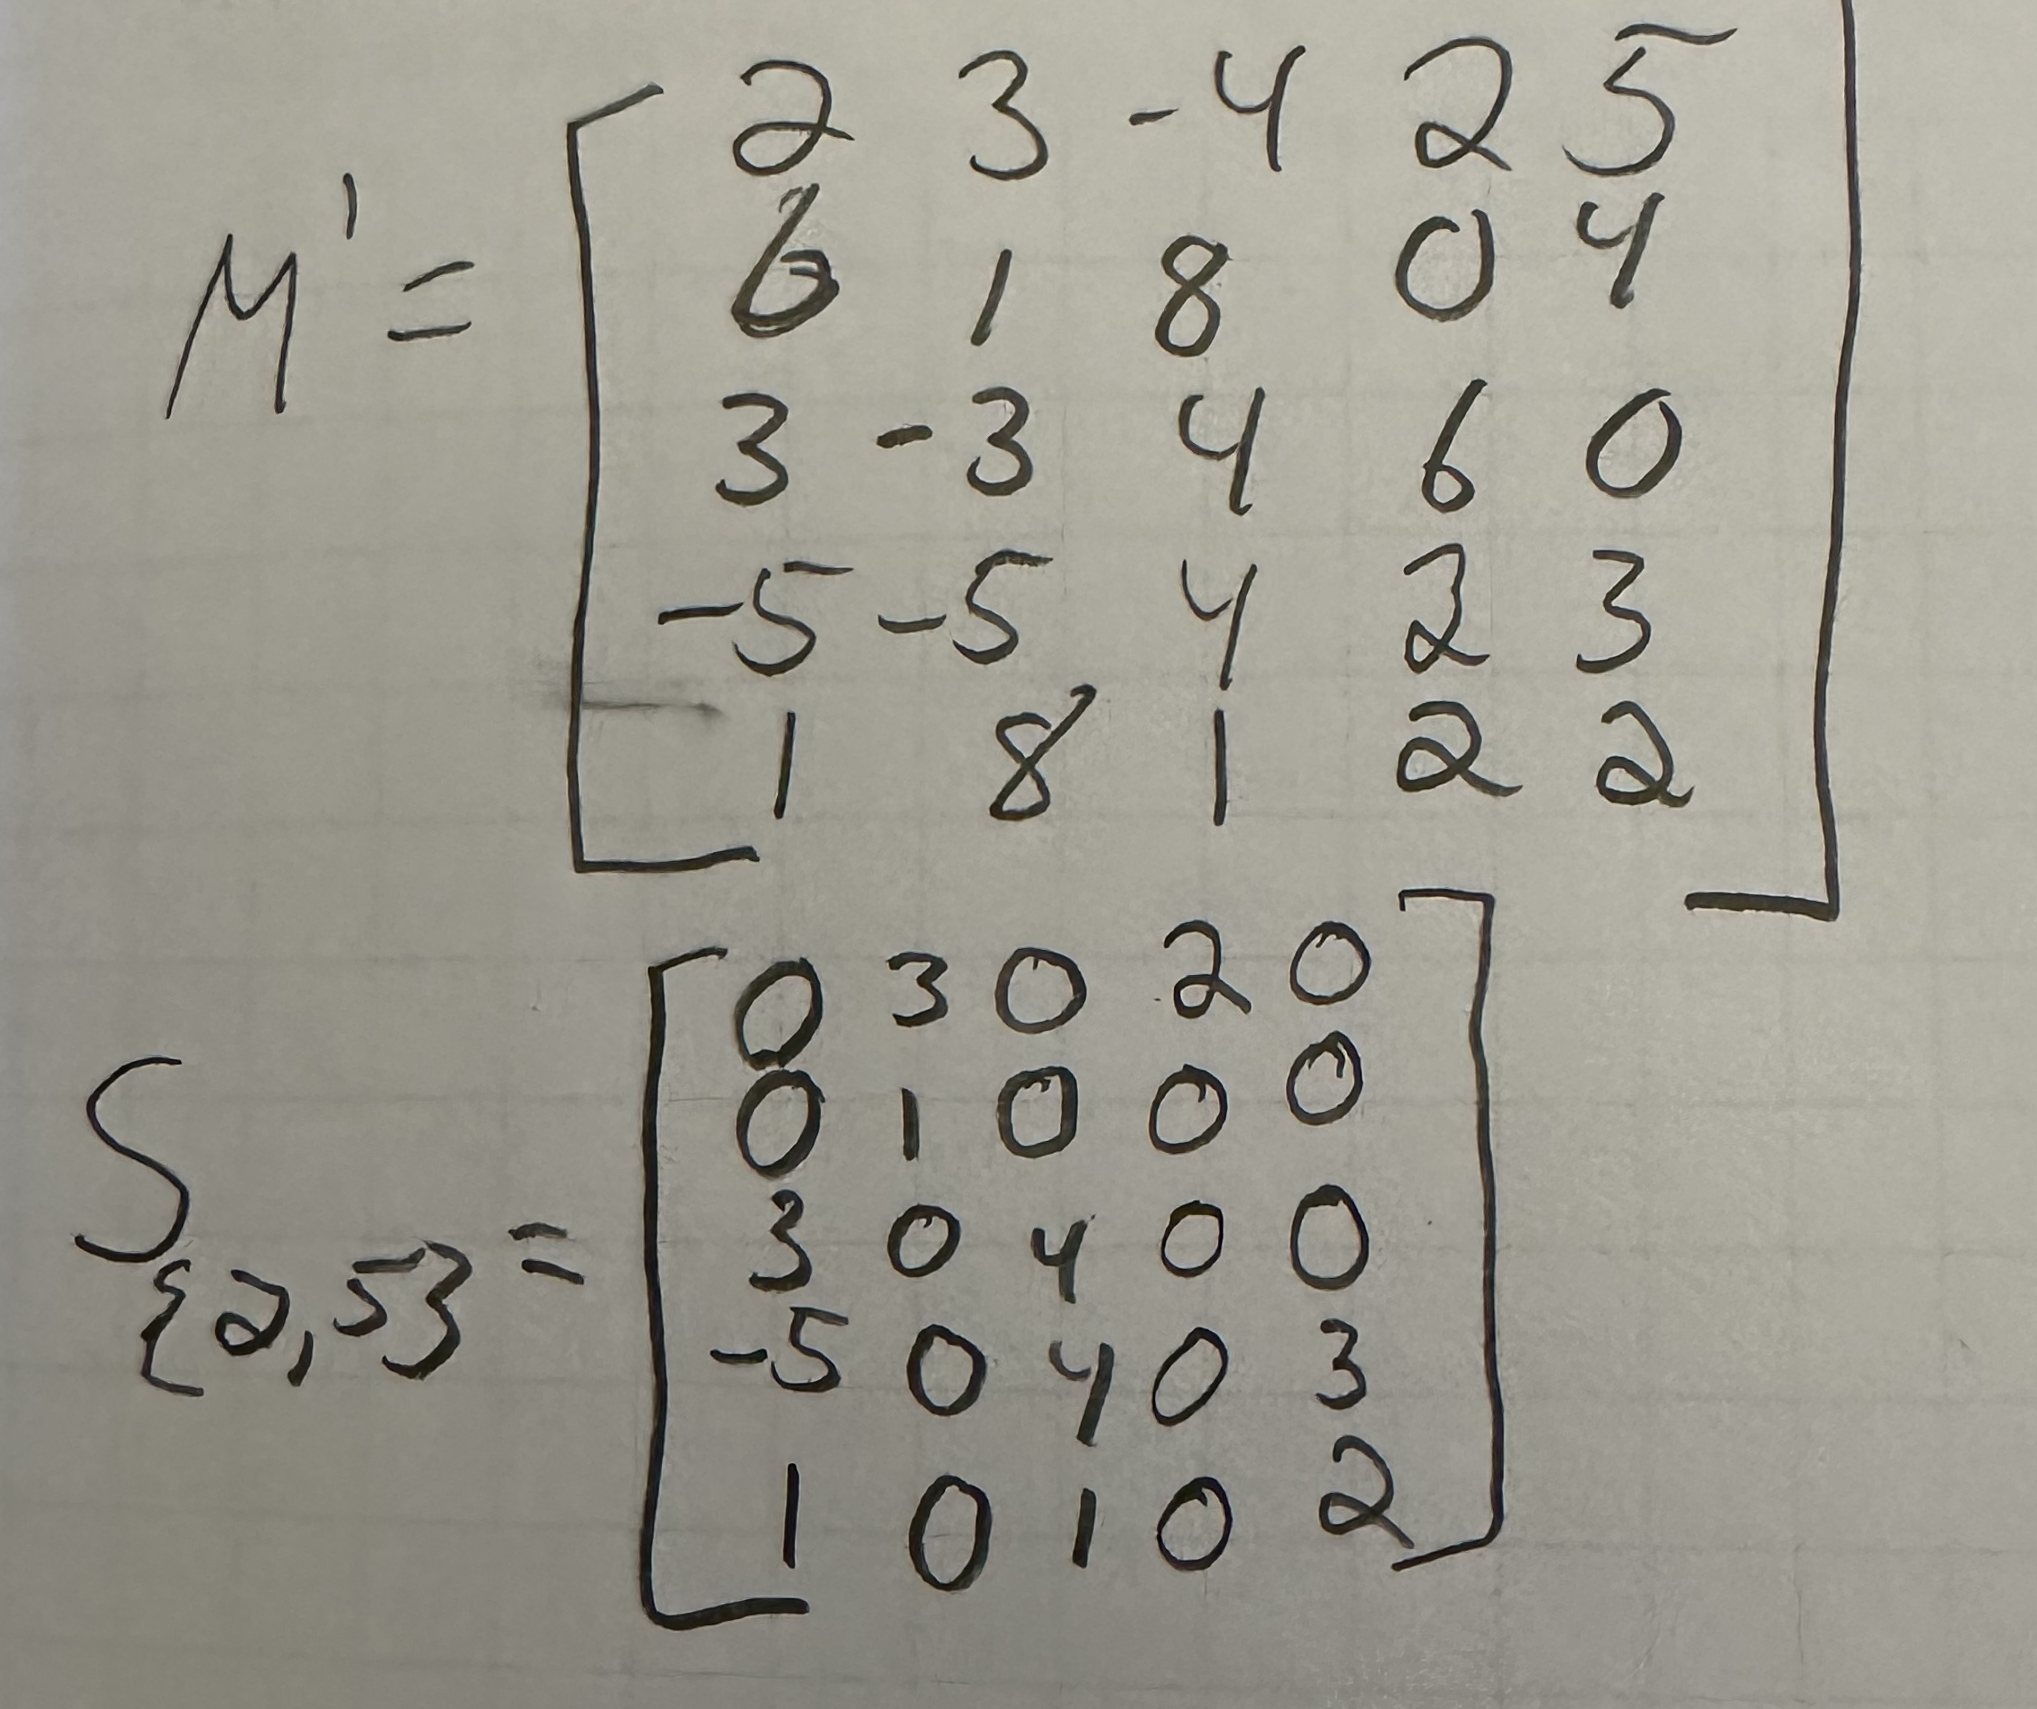 M' = [ 2 3 -4 2 5
6 1 8 0 4
3 -3 4 6 0
-5 -5 4 2 3
1 8 1 2 2 ]
S{2,5} = [ 0 3 0 2 0
0 1 0 0 0
3 0 4 0 0
-5 0 4 0 3
1 0 1 0 2 ]